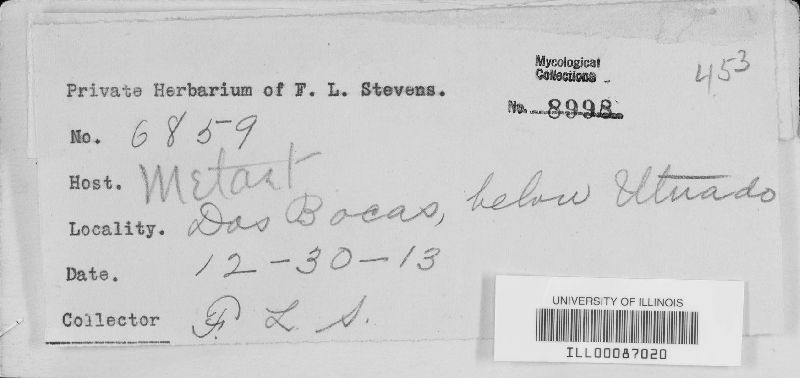 Mycological
Collections
453
Private Herbarium of F. L. Stevens.
No. 8998
No. 6859
Host. Metast
Locality. Dos Bocas, below Utuado
Date. 12-30-13
Collector F. L. S.
UNIVERSITY OF ILLINOIS
ILL00087020